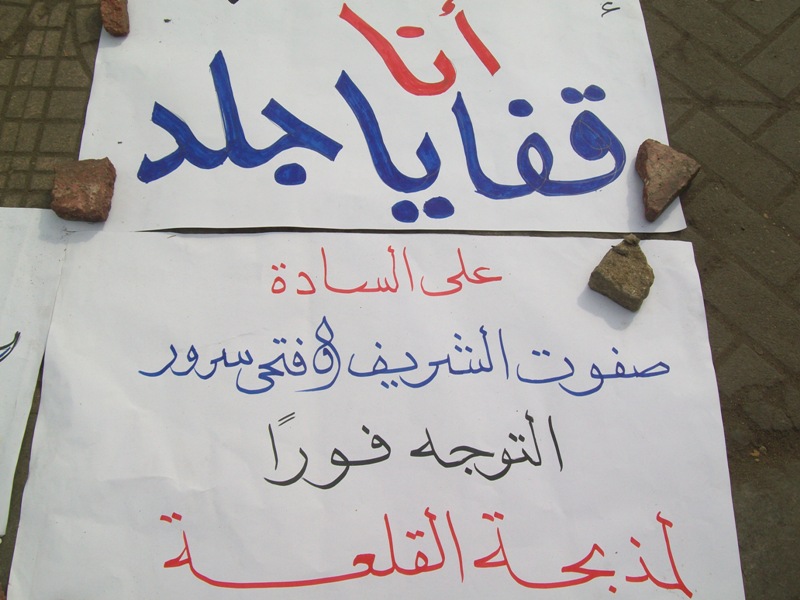 أنا
قفايا جلد
على السادة
صفوت الشريف & فتحى سرور
التوجه فورًا
لمذبحة القلعة